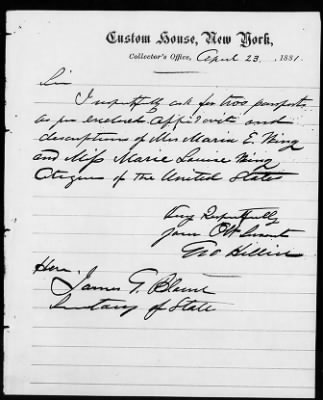 Custom House, New York,
Collector's Office, April 23, 1881.
Sir
I respectfully ask for two passports
as per enclosed Affidavits and
descriptions of Mrs Maria E. King
and Miss Marie Louise King
Citizens of the United States
Very Respectfully
your Obt Servant
Geo
Hon.
James G. Blaine
Secretary of State